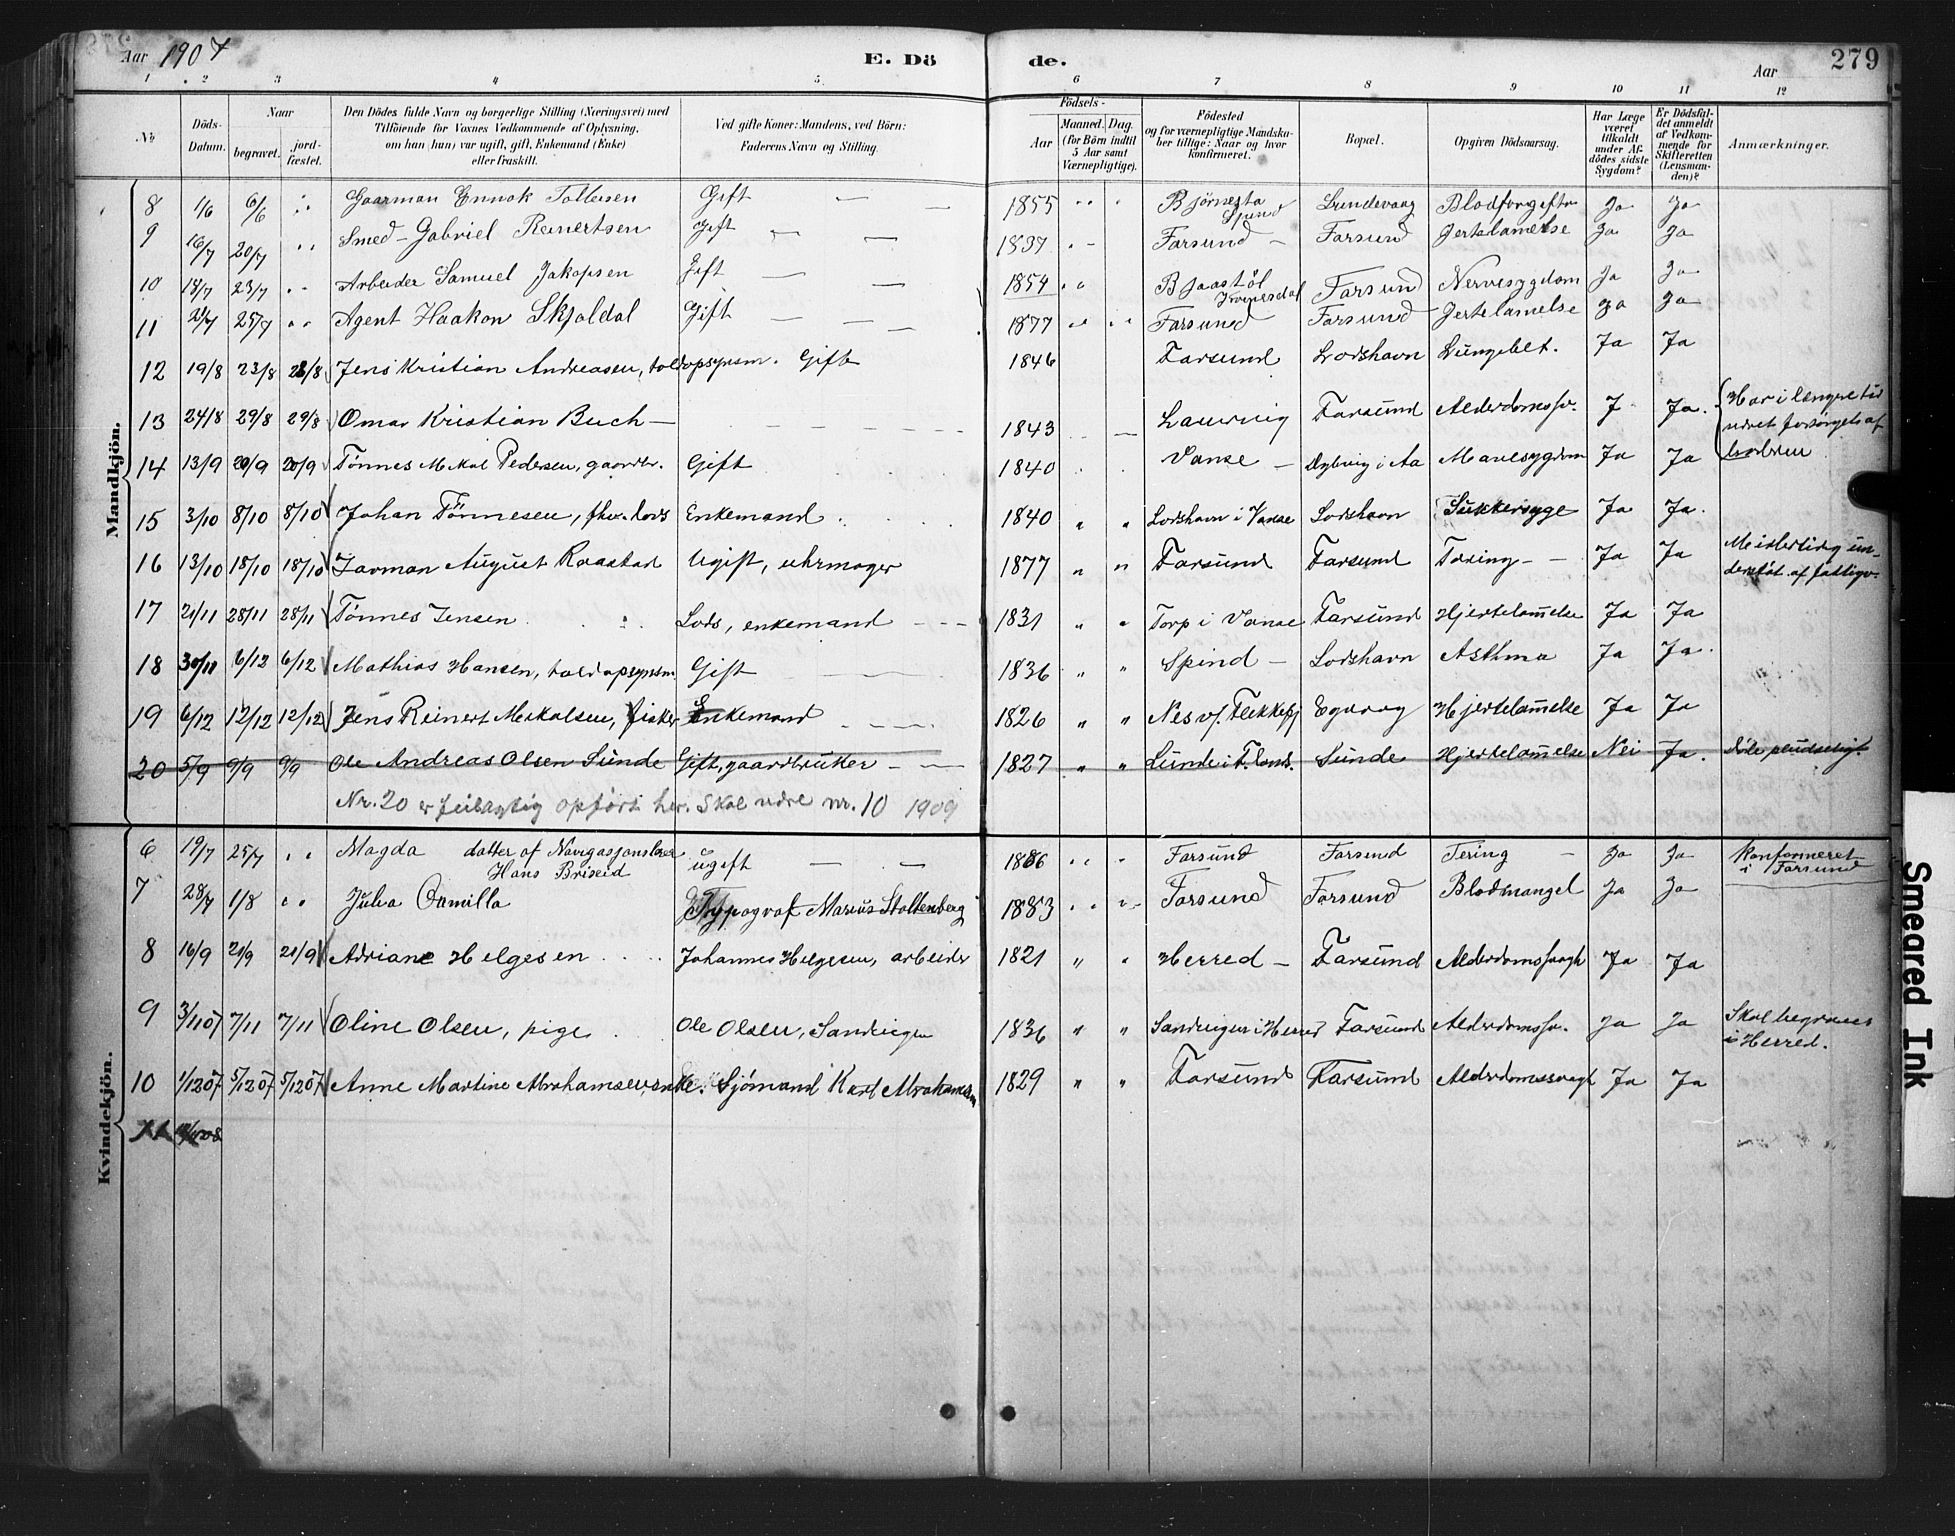 Aar 1907 E. Dö de. Aar 279
1 2 3 4 5 6 7 8 9 10 11 12
No
Döds-Datum.
Naar
begravet.
jord-fæstet.
Den Dödes fulde Navn og borgerlige Stilling (Næringsvei) med
Tilföiende for Voxnes Vedkommende af Oplysning,
om han (hun) var ugift, gift, Enkemand (Enke)
eller fraskilt.
Ved gifte Koner: Mandens, ved Börn:
Faderens Navn og Stilling.
Födsels-
Aar
Maaned. Dag.
(for Börn indtil
5 Aar samt
Værnepligtige).
Födested
og for værnepligtige Mandska-
ber tillige: Naar og hvor
konfirmeret.
Bopæl.
Opgiven Dödsaarsag.
Har Læge
været
tilkaldt
under Af-
dödes sidste
Sygdom?
Er Dödsfal-
det anmeldt
af Vedkom-
mende for
Skifteretten
(Lensman-
den)?
Anmærkninger.
Mandkjön.
8 1/6 6/6 " Gaarman Ennok Tollersen Gift — — 1855 " " Bjørnesta Spind Lundevaag Blodforgiftn Ja Ja
9 16/7 20/7 " Smed - Gabriel Reinertsen Gift — — 1837 " - Farsund - Farsund Jertelamelse Ja Ja
10 18/7 23/7 " Arbeider Samuel Jakopsen Gift — — 1854 " Bjaastøl Kvinesdal Farsund Nervesygdom Ja Ja
11 21/7 25/7 " Agent Haakon Skjoldal Gift — — 1877 " " Farsund Farsund Jertelamelse Ja Ja
12 19/8 23/8 23/8 Jens Kristian Andreasen, toldopsynsm. Gift 1846 Farsund Lodshavn Lungebet. Ja Ja
13 24/8 29/8 29/8 Omar Kristian Buch — 1843 — Laurvig Farsund Alderdomssv. J Ja. Har i længre tid
været forsørget af
børnene
14 13/9 20/9 20/9 Tønnes Mikal Pedersen, gaardbr. Gift 1840 Vanse — Dybvig i Aa Mavesygdom Ja Ja
15 3/10 8/10 8/10 Johan Tønnesen, fhv. lods Enkemand 1840 " " Lodshavn i Vanse Lodshavn Sukkersyge Ja Ja.
16 13/10 18/10 18/10 Jarman August Raastad Ugift, uhrmager 1877 " " Farsund Farsund Tæring - - Ja Ja Midlertidig un-
derstøt. af fattigv.
17 21/11 28/11 28/11 Tønnes Jensen Lods, enkemand - - - 1831 " " Torp i Vanse Farsund Hjertelammelse Ja Ja
18 30/11 6/12 6/12 Mathias Hansen, toldopsynsm. Gift 1836 " " Spind - Lodshavn Asthma Ja Ja.
19 6/12 12/12 12/12 Jens Reinert Mikalsen, fisker Enkemand 1826 " " Nes v/. Flekkefj Egvaag Hjertelammelse Ja Ja
20 5/9 9/9 9/9 Ole Andreas Olsen Sunde Gift, gaardbruker - — 1827 " " Lunde i F. land. Sunde Hjertelammelse Nei Ja. døde pludseligt
Nr. 20 er feilagtig opført her. Skal være nr. 10 1909
Kvindekjön.
6 19/7 25/7 " Magda datter af Navigasjonslærer
Hans Briseid ugift — — 1886 " " Farsund Farsund Tering - Ja Ja Konformeret
i Farsund
7 28/7 1/8 " Julia Camilla Typograf Marius Stoltenberg 1883 " " Farsund Farsund Blodmangel Ja Ja
8 16/9 21/9 21/9 Adriane Helgesen Johannes Helgesen, arbeider 1821 " " Herred - Farsund Alderdomssvagh Ja Ja
9 3/11 07 7/11 7/11 Oline Olsen, pige Ole Olsen, Sandvigen 1836 " " Sandvigen i Herred Farsund Alderdomssv. Ja Ja Skal begraves
i Herred.
10 1/12 07 5/12 07 5/12 07 Anne Martine Abrahamsen, enke. Sjømand Karl Abrahamsen 1829 " " Farsund Farsund Alderdomssvagh Ja Ja
11
Smeared Ink